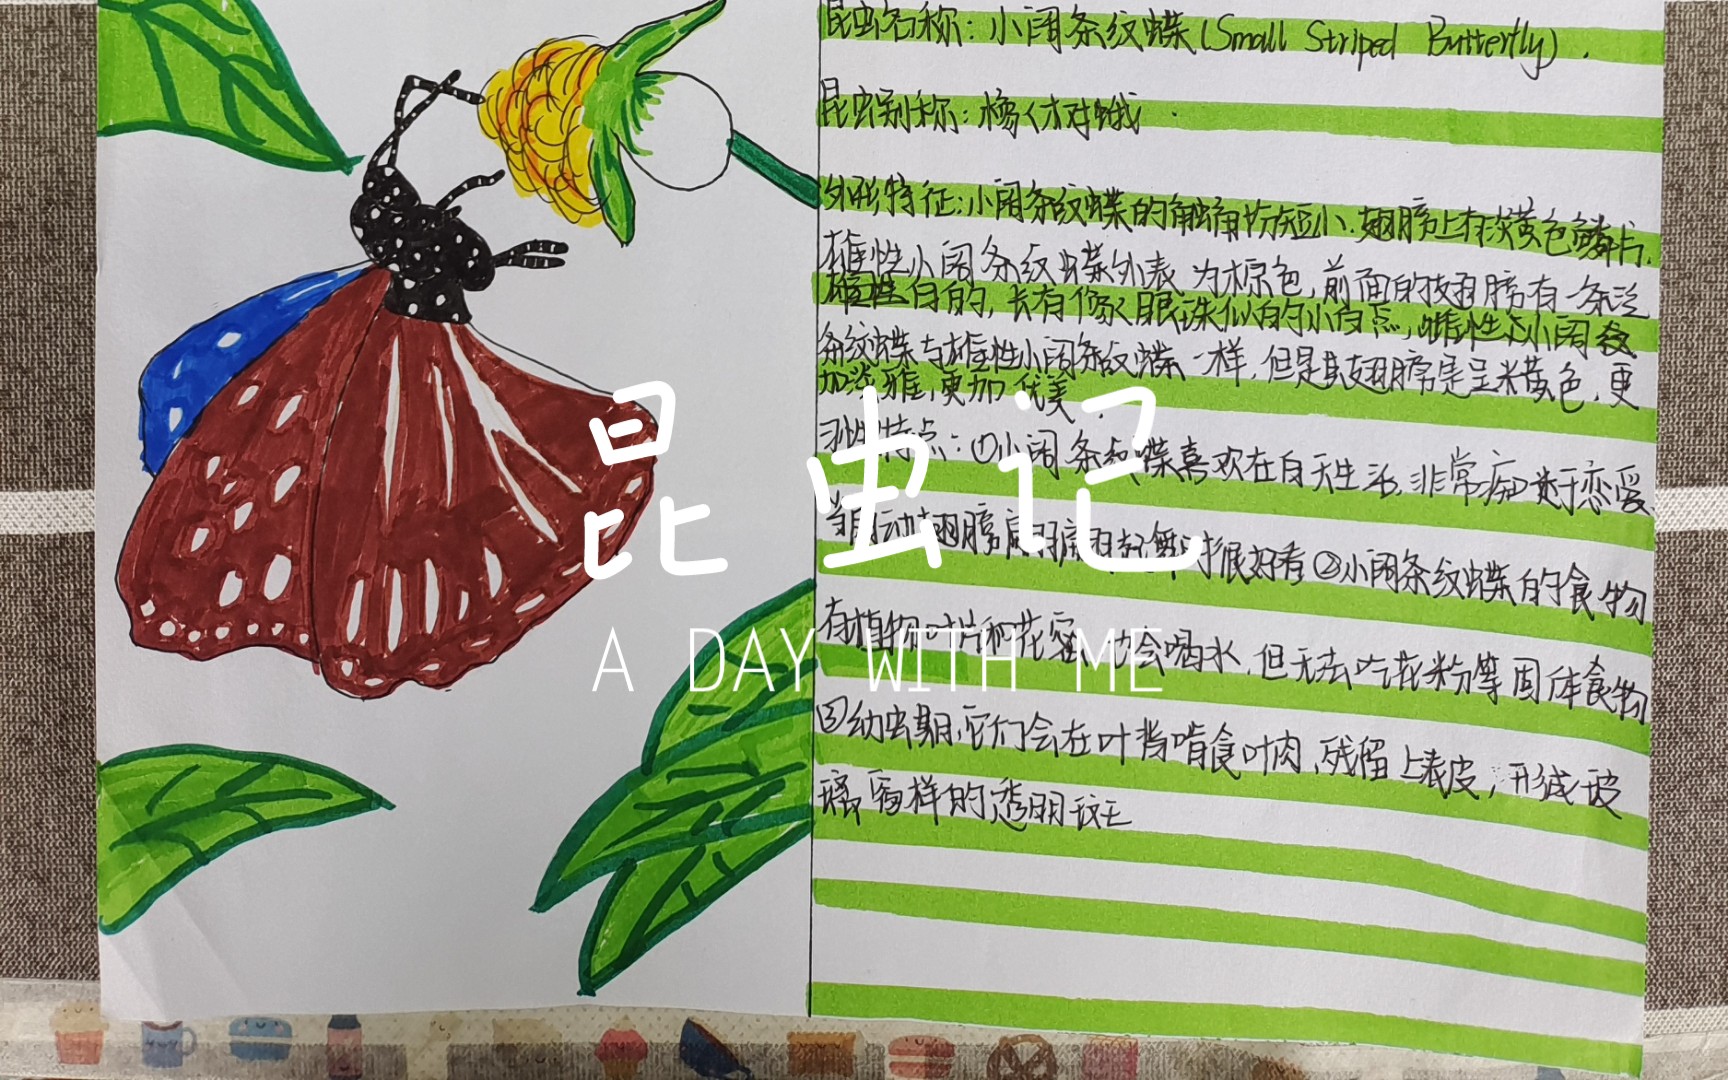 昆虫名称：小阔条纹蝶(Small Striped Butterfly).
昆虫别称：橡树蛾
外形特征：小阔条纹蝶的触角较短小.翅膀上有淡黄色鳞片.
雄性小阔条纹蝶外表为棕色,前面的翅膀有一条泛
白的,长有像眼珠似的小白点,雌性小阔
条纹蝶与雄性小阔条纹蝶一样,但是其翅膀是呈米黄色,更
加淡雅,更加优美.
特点：①小阔条纹蝶喜欢在白天生活,非常痴迷于恋爱
翅膀起舞时很好看②小阔条纹蝶的食物
有植物叶片和花蜜,也会喝水,但无法吃花粉等固体食物
③幼虫期,它们会在叶背啃食叶肉,残留上表皮,形成玻
璃窗样的透明斑
昆虫记
A DAY WITH ME